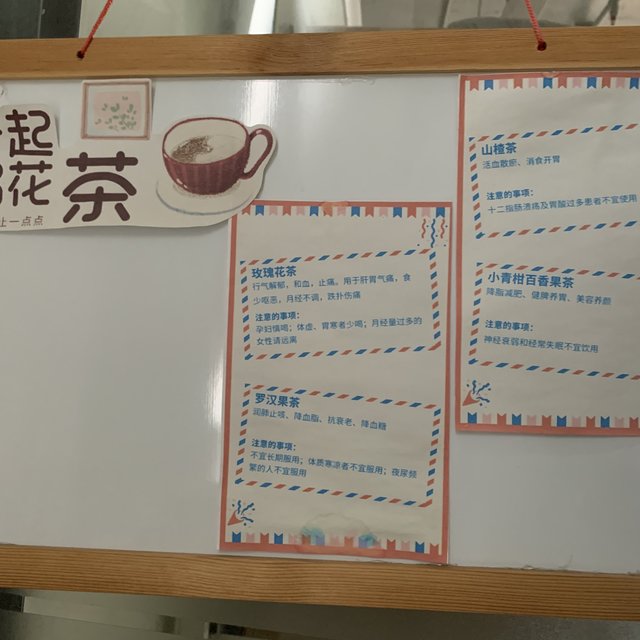 起
花茶
让一点点
玫瑰花茶
行气解郁，和血，止痛。用于肝胃气痛，食
少呕恶，月经不调，跌扑伤痛
注意的事项：
孕妇慎喝；体虚、胃寒者少喝；月经量过多的
女性请远离
罗汉果茶
润肺止咳、降血脂、抗衰老、降血糖
注意的事项：
不宜长期服用；体质寒凉者不宜服用；夜尿频
繁的人不宜服用
山楂茶
活血散瘀、消食开胃
注意的事项：
十二指肠溃疡及胃酸过多患者不宜使用
小青柑百香果茶
降脂减肥、健脾养胃、美容养颜
注意的事项：
神经衰弱和经常失眠不宜饮用